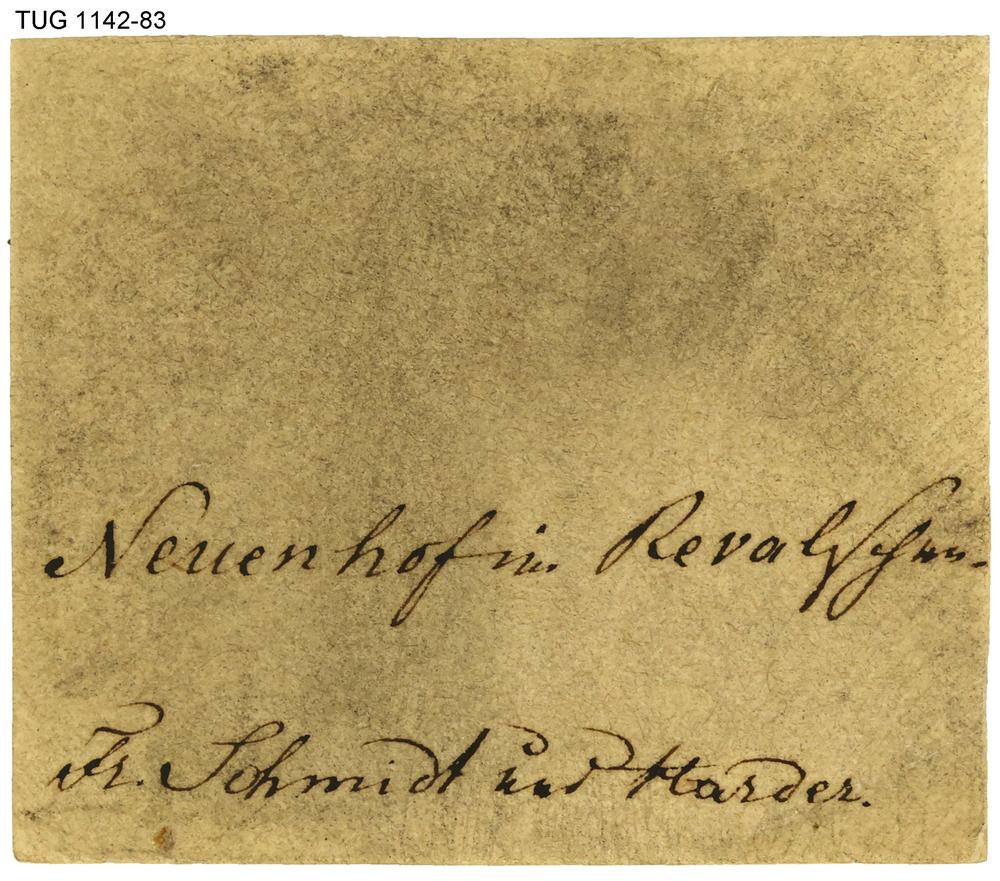 TUG 1142-83
Neuenhof im Revalschen.
Fr. Schmidt und Harder.